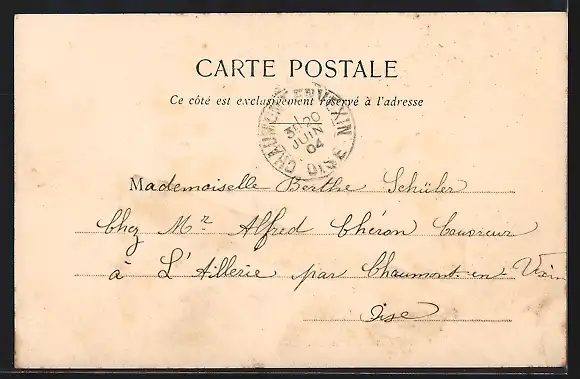 CARTE POSTALE
Ce côté est exclusivement réservé à l'adresse
CHAUMONT-EN-VEXIN
1
3E 20
JUIN
04
OISE
Mademoiselle Berthe Schüler
Chez Mr Alfred Chéron Couvreur
à L'Aillerie par Chaumont-en-Vexin
Oise